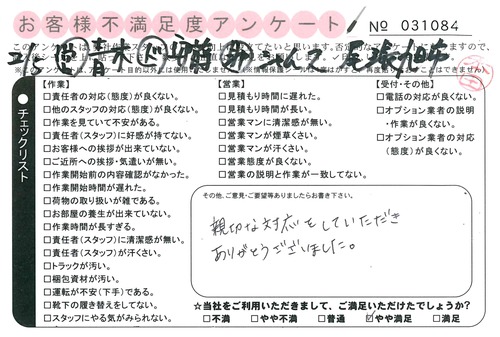 お客様不満足度アンケート
No 031084
チェックリスト
【作業】
□責任者の対応(態度)が良くない。
□他のスタッフの対応(態度)が良くない。
□作業を見ていて不安がある。
□責任者(スタッフ)に好感が持てない。
□お客様への挨拶が出来ていない。
□ご近所への挨拶・気遣いが無い。
□作業開始前の内容確認がなかった。
□作業開始時間が遅れた。
□荷物の取り扱いが雑である。
□お部屋の養生が出来ていない。
□作業時間が長すぎる。
□責任者(スタッフ)に清潔感が無い。
□責任者(スタッフ)が汗くさい。
□トラックが汚い。
□梱包資材が汚い。
□運転が不安(下手)である。
□靴下の履き替えをしてない。
□スタッフにやる気がみられない。
【営業】
□見積もり時間に遅れた。
□見積もり時間が長い。
□営業マンに清潔感が無い。
□営業マンが煙草くさい。
□営業マンが汗くさい。
□営業態度が良くない。
□営業の説明と作業が一致してない。
【受付・その他】
□電話の対応が良くない。
□オプション業者の説明
・作業が良くない。
□オプション業者の対応
(態度)が良くない。
その他、ご意見・ご要望等ありましたらお書き下さい。
親切な対応をしていただき
ありがとうございました。
☆当社をご利用いただきまして、ご満足いただけたでしょうか?
□不満 □やや不満 □普通 ☑やや満足 □満足